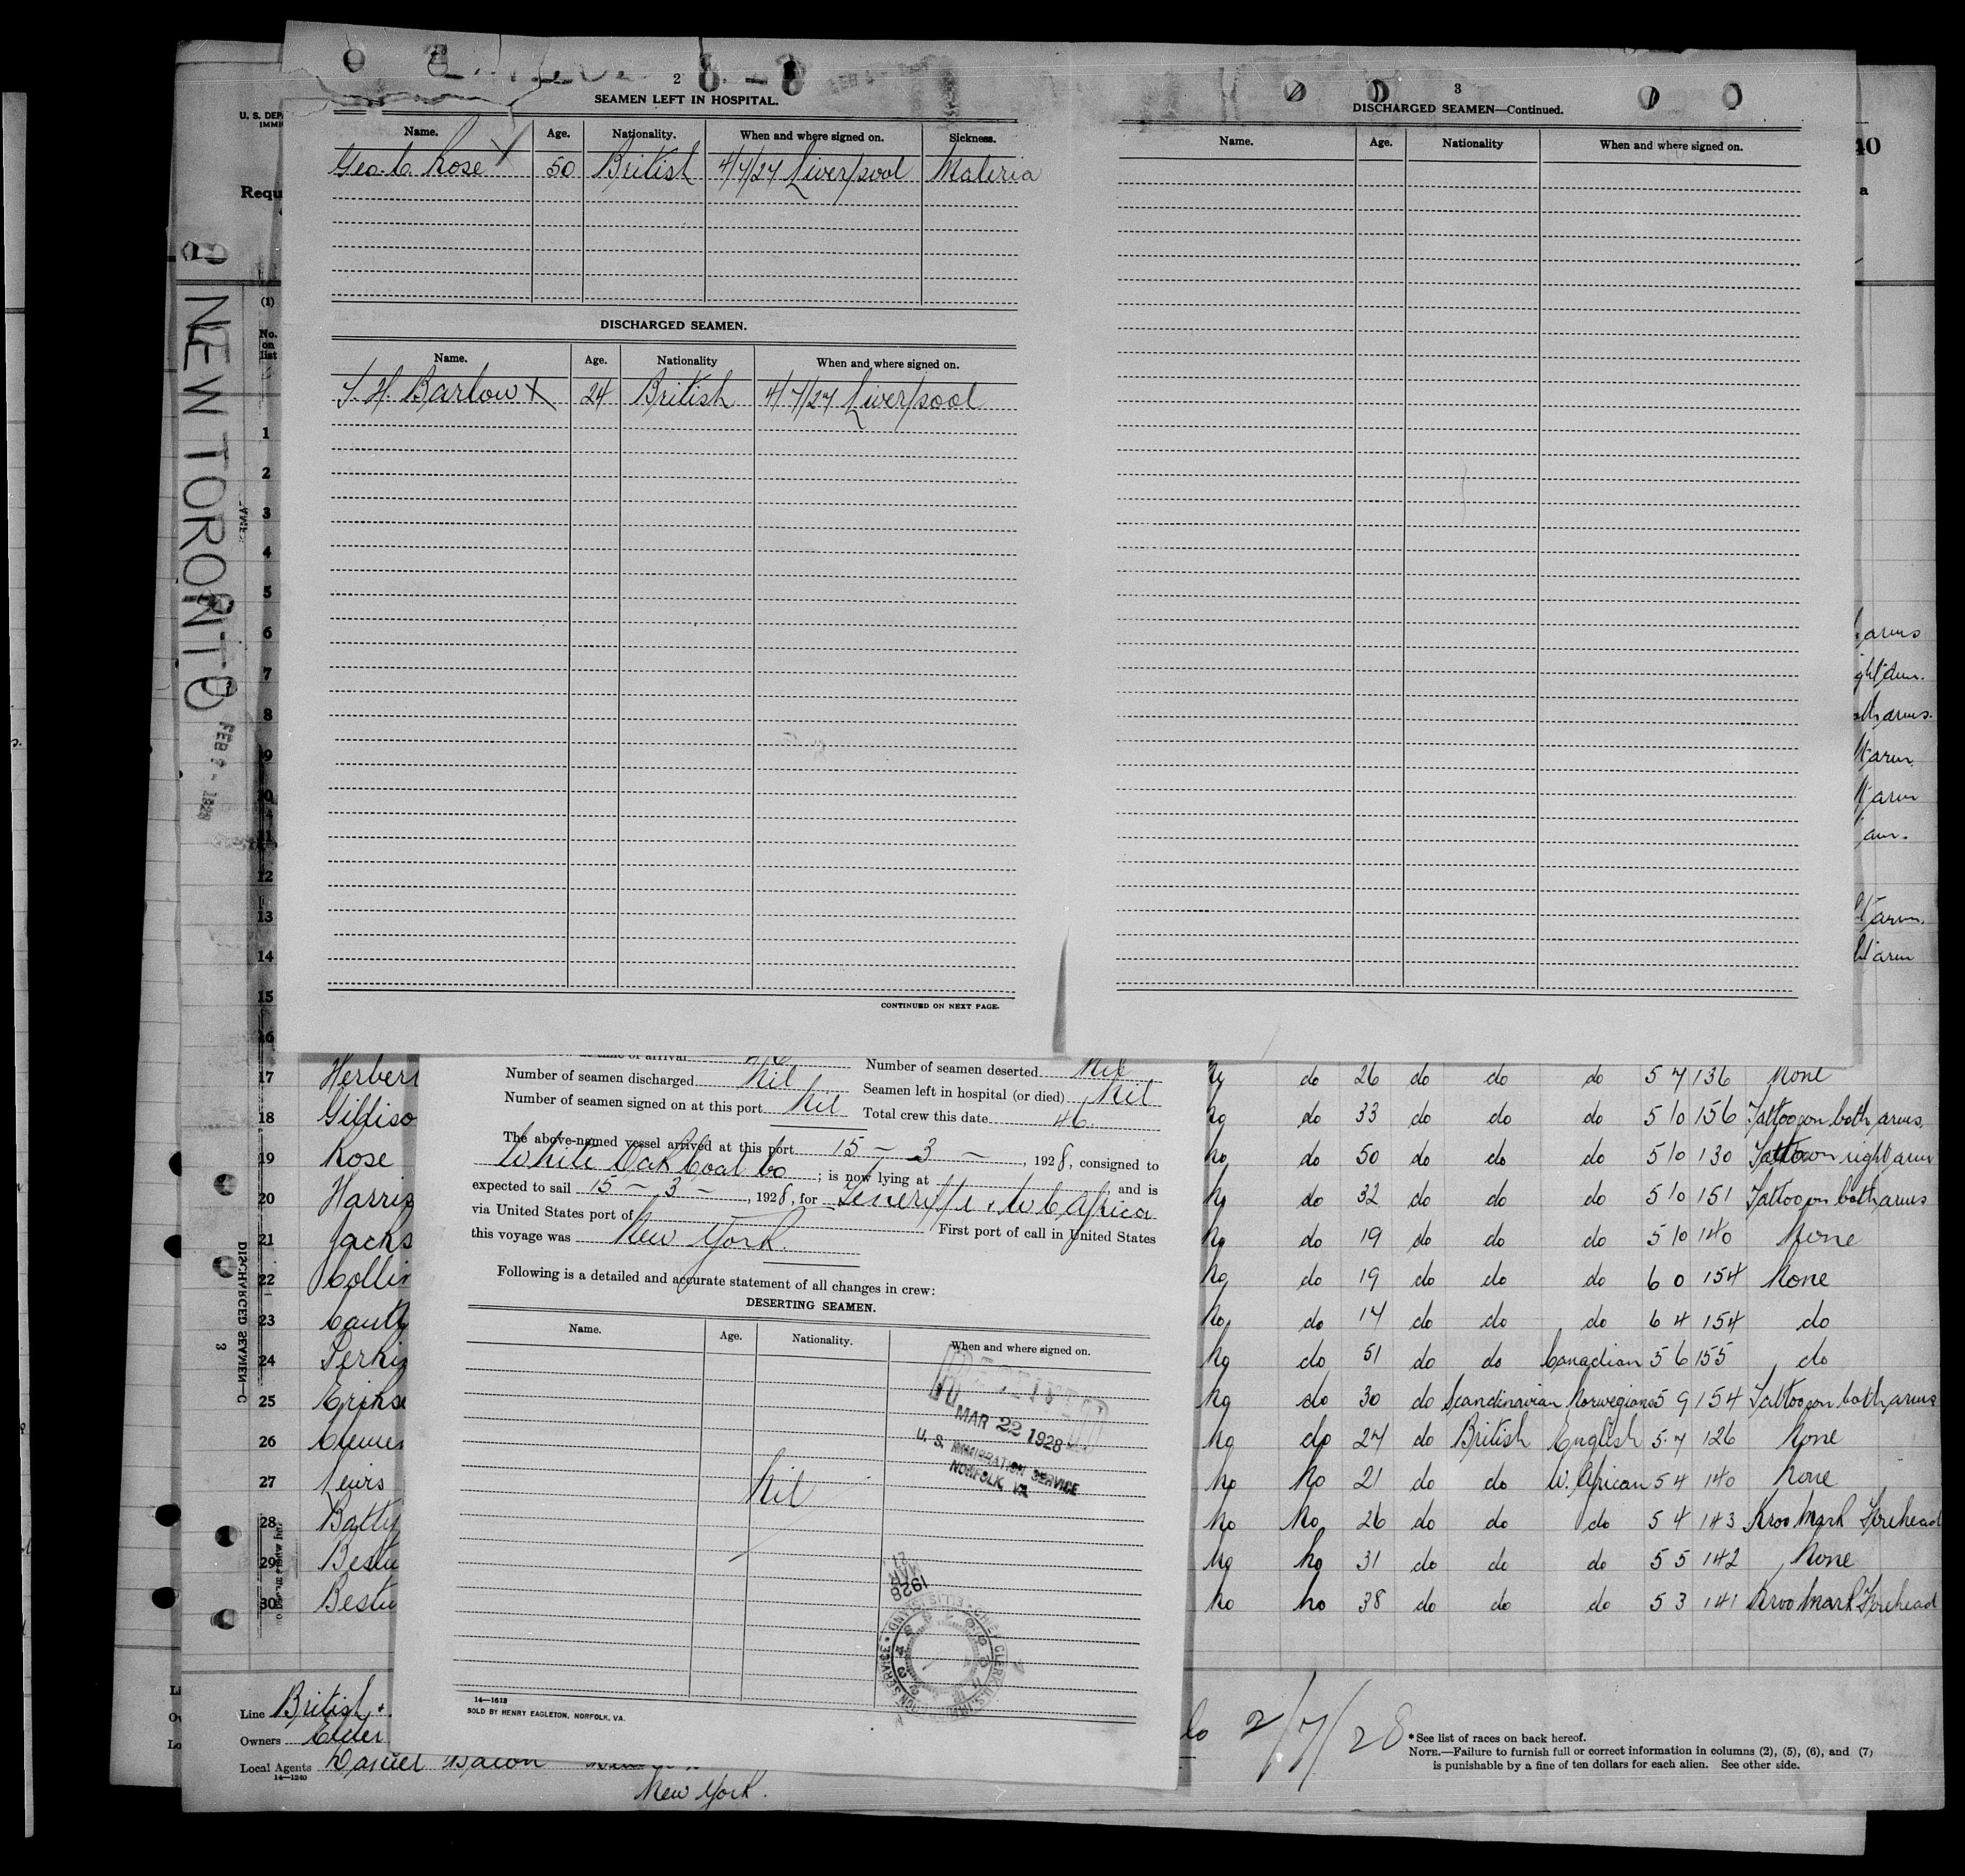 2
SEAMEN LEFT IN HOSPITAL.
Name. Age. Nationality. When and where signed on. Sickness.
Geo. C. Rose 50 British 4/7/27 Liverpool Maleria
DISCHARGED SEAMEN.
Name. Age. Nationality When and where signed on.
T. H. Barlow X 24 British 4/7/27 Liverpool
CONTINUED ON NEXT PAGE.
3
DISCHARGED SEAMEN—Continued.
Name. Age. Nationality When and where signed on.
NEW TORONTO
FEB 7 - 1928
U. S. DEP
IMMI
Requ
(1)
No.
on
list
1
2
3
4
5
6
7
8
9
10
11
12
13
14
15
16
40
a
arms
arms.
arm.
arm
arm.
arm.
arm
Number of seamen discharged Nil
Number of seamen signed on at this port Nil
Number of seamen deserted Nil
Seamen left in hospital (or died) Nil
Total crew this date 46.
The above-named vessel arrived at this port 15 - 3 - , 1928, consigned to
White Oak Coal Co ; is now lying at and is
expected to sail 15 - 3 - , 1928, for Teneriffe & W C Africa
via United States port of First port of call in United States
this voyage was New York.
Following is a detailed and accurate statement of all changes in crew:
DESERTING SEAMEN.
Name. Age. Nationality. When and where signed on.
RECEIVED
MAR 22 1928
U. S. IMMIGRATION SERVICE
NORFOLK, VA
Nil
MAR
1928
14—1613
SOLD BY HENRY EAGLETON, NORFOLK, VA.
17 Herber do 26 do do do 5 7 136 None
18 Gildiso No do 33 do do do 5 10 156 Tattoo on both arms.
19 Rose No do 50 do do do 5 10 130 Tattoo on right arm
20 Harris No do 32 do do do 5 10 151 Tattoo on both arms
21 Jacks No do 19 do do do 5 10 140 None
22 Collin No do 19 do do do 6 0 154 None
23 Cauth No do 17 do do do 6 4 154 do
24 Perki No do 51 do do Canadian 5 6 155 do
25 Erikse No do 30 do Scandinavian Norwegian 5 9 154 Tattoo on both arms
26 Clemen No do 27 do British English 5 7 126 None
27 No No 21 do do W. African 5 4 140 None
28 Batty No No 26 do do do 5 4 143 Kroo Mark Forehead
29 Best No No 31 do do do 5 5 142 None
30 Best No No 38 do do do 5 3 141 Kroo Mark Forehead
DISCHARGED SEAMEN—C
3
Line British &
Owners Elder
Local Agents Daniel Bacon
14—1240
New York.
2/7/28
*See list of races on back hereof.
NOTE.—Failure to furnish full or correct information in columns (2), (5), (6), and (7)
is punishable by a fine of ten dollars for each alien. See other side.